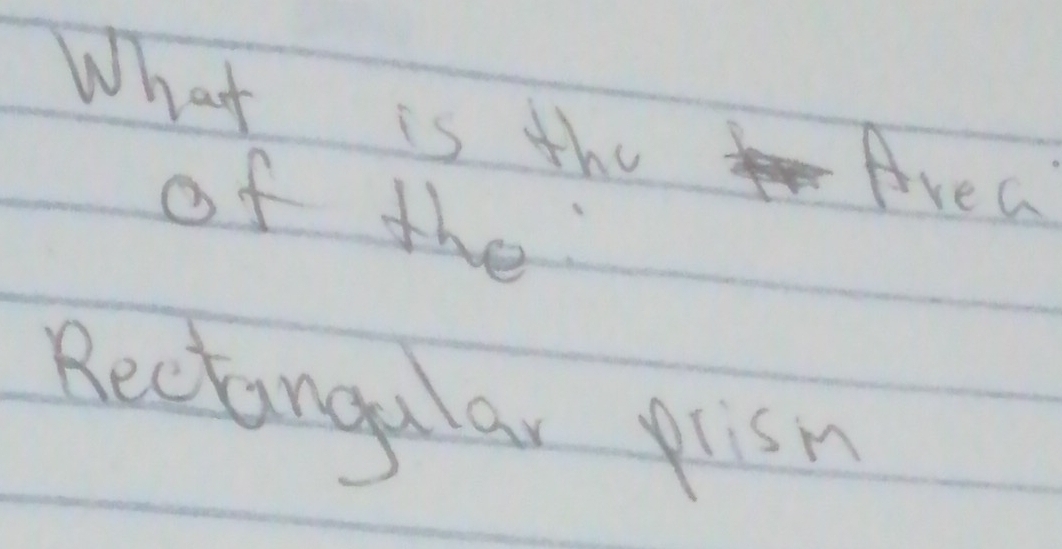 What is the Area
of the
Rectangular prism